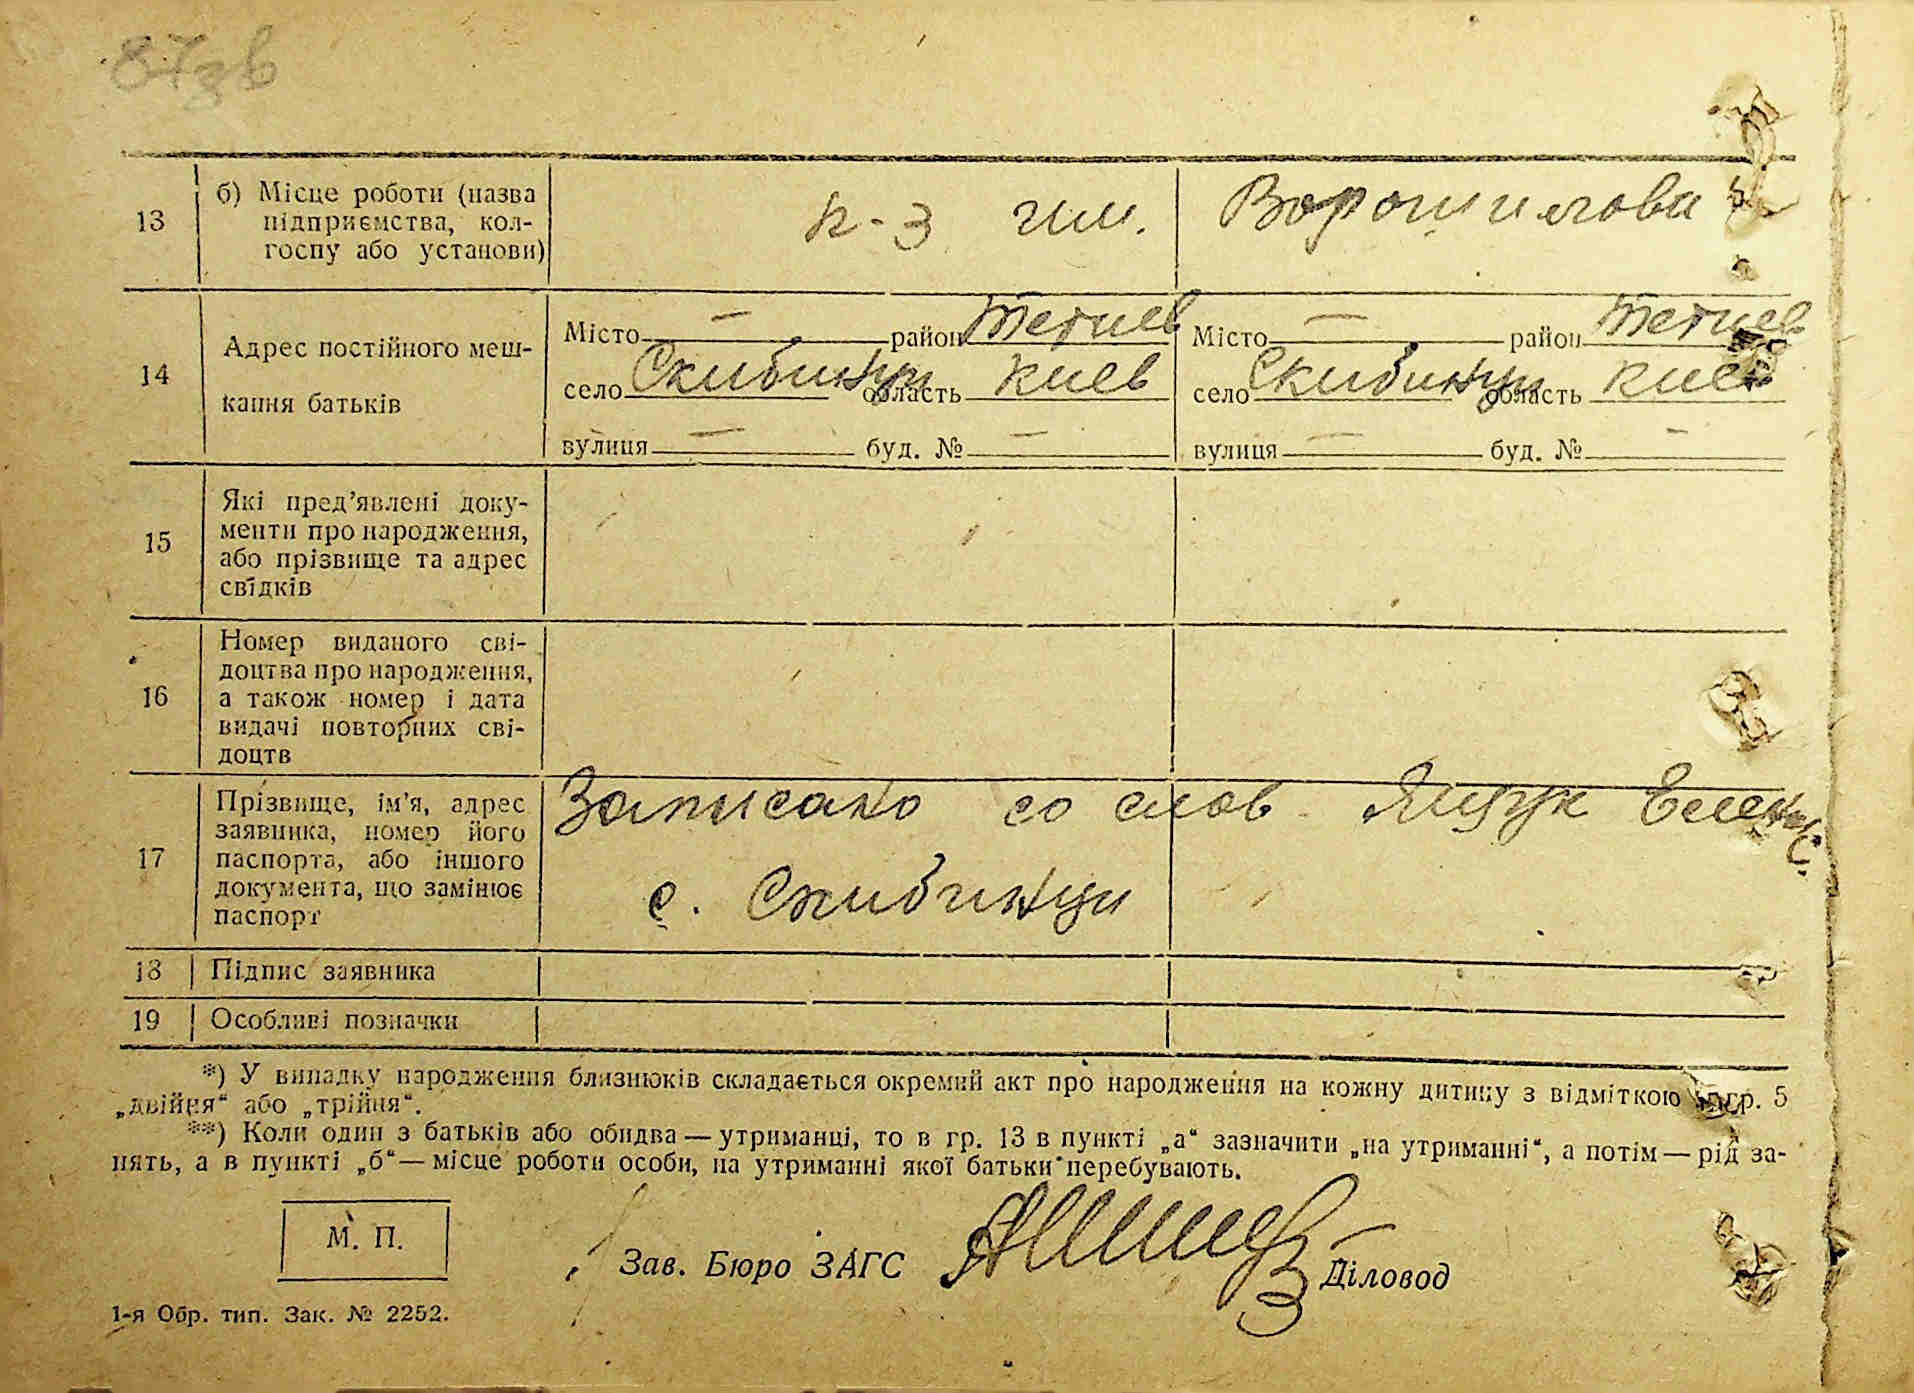 87зв
13 б) Місце роботи (назва
підприємства, кол-
госпу або установи)
к-з им. Ворошилова
14 Адрес постійного меш-
кання батьків
Місто — район Тетиев Місто — район Тетиев
село Скибинци область Киев село Скибинци область Киев
вулиця — буд. № — вулиця — буд. № —
15 Які пред’явлені доку-
менти про народження,
або прізвище та адрес
свідків
16 Номер виданого сві-
доцтва про народження,
а також номер і дата
видачі повторних сві-
доцтв
17 Прізвище, ім’я, адрес
заявника, номер його
паспорта, або іншого
документа, що замінює
паспорт
Записано со слов Ящук
с. Скибинци
18 Підпис заявника
19 Особливі позначки
*) У випадку народження близнюків складається окремий акт про народження на кожну дитину з відміткою в гр. 5
„двійня“ або „трійня“.
**) Коли один з батьків або обидва — утриманці, то в гр. 13 в пункті „а“ зазначити „на утриманні“, а потім — рід за-
нять, а в пункті „б“ — місце роботи особи, на утриманні якої батьки перебувають.
М. П.
Зав. Бюро ЗАГС Діловод
1-я Обр. тип. Зак. № 2252.